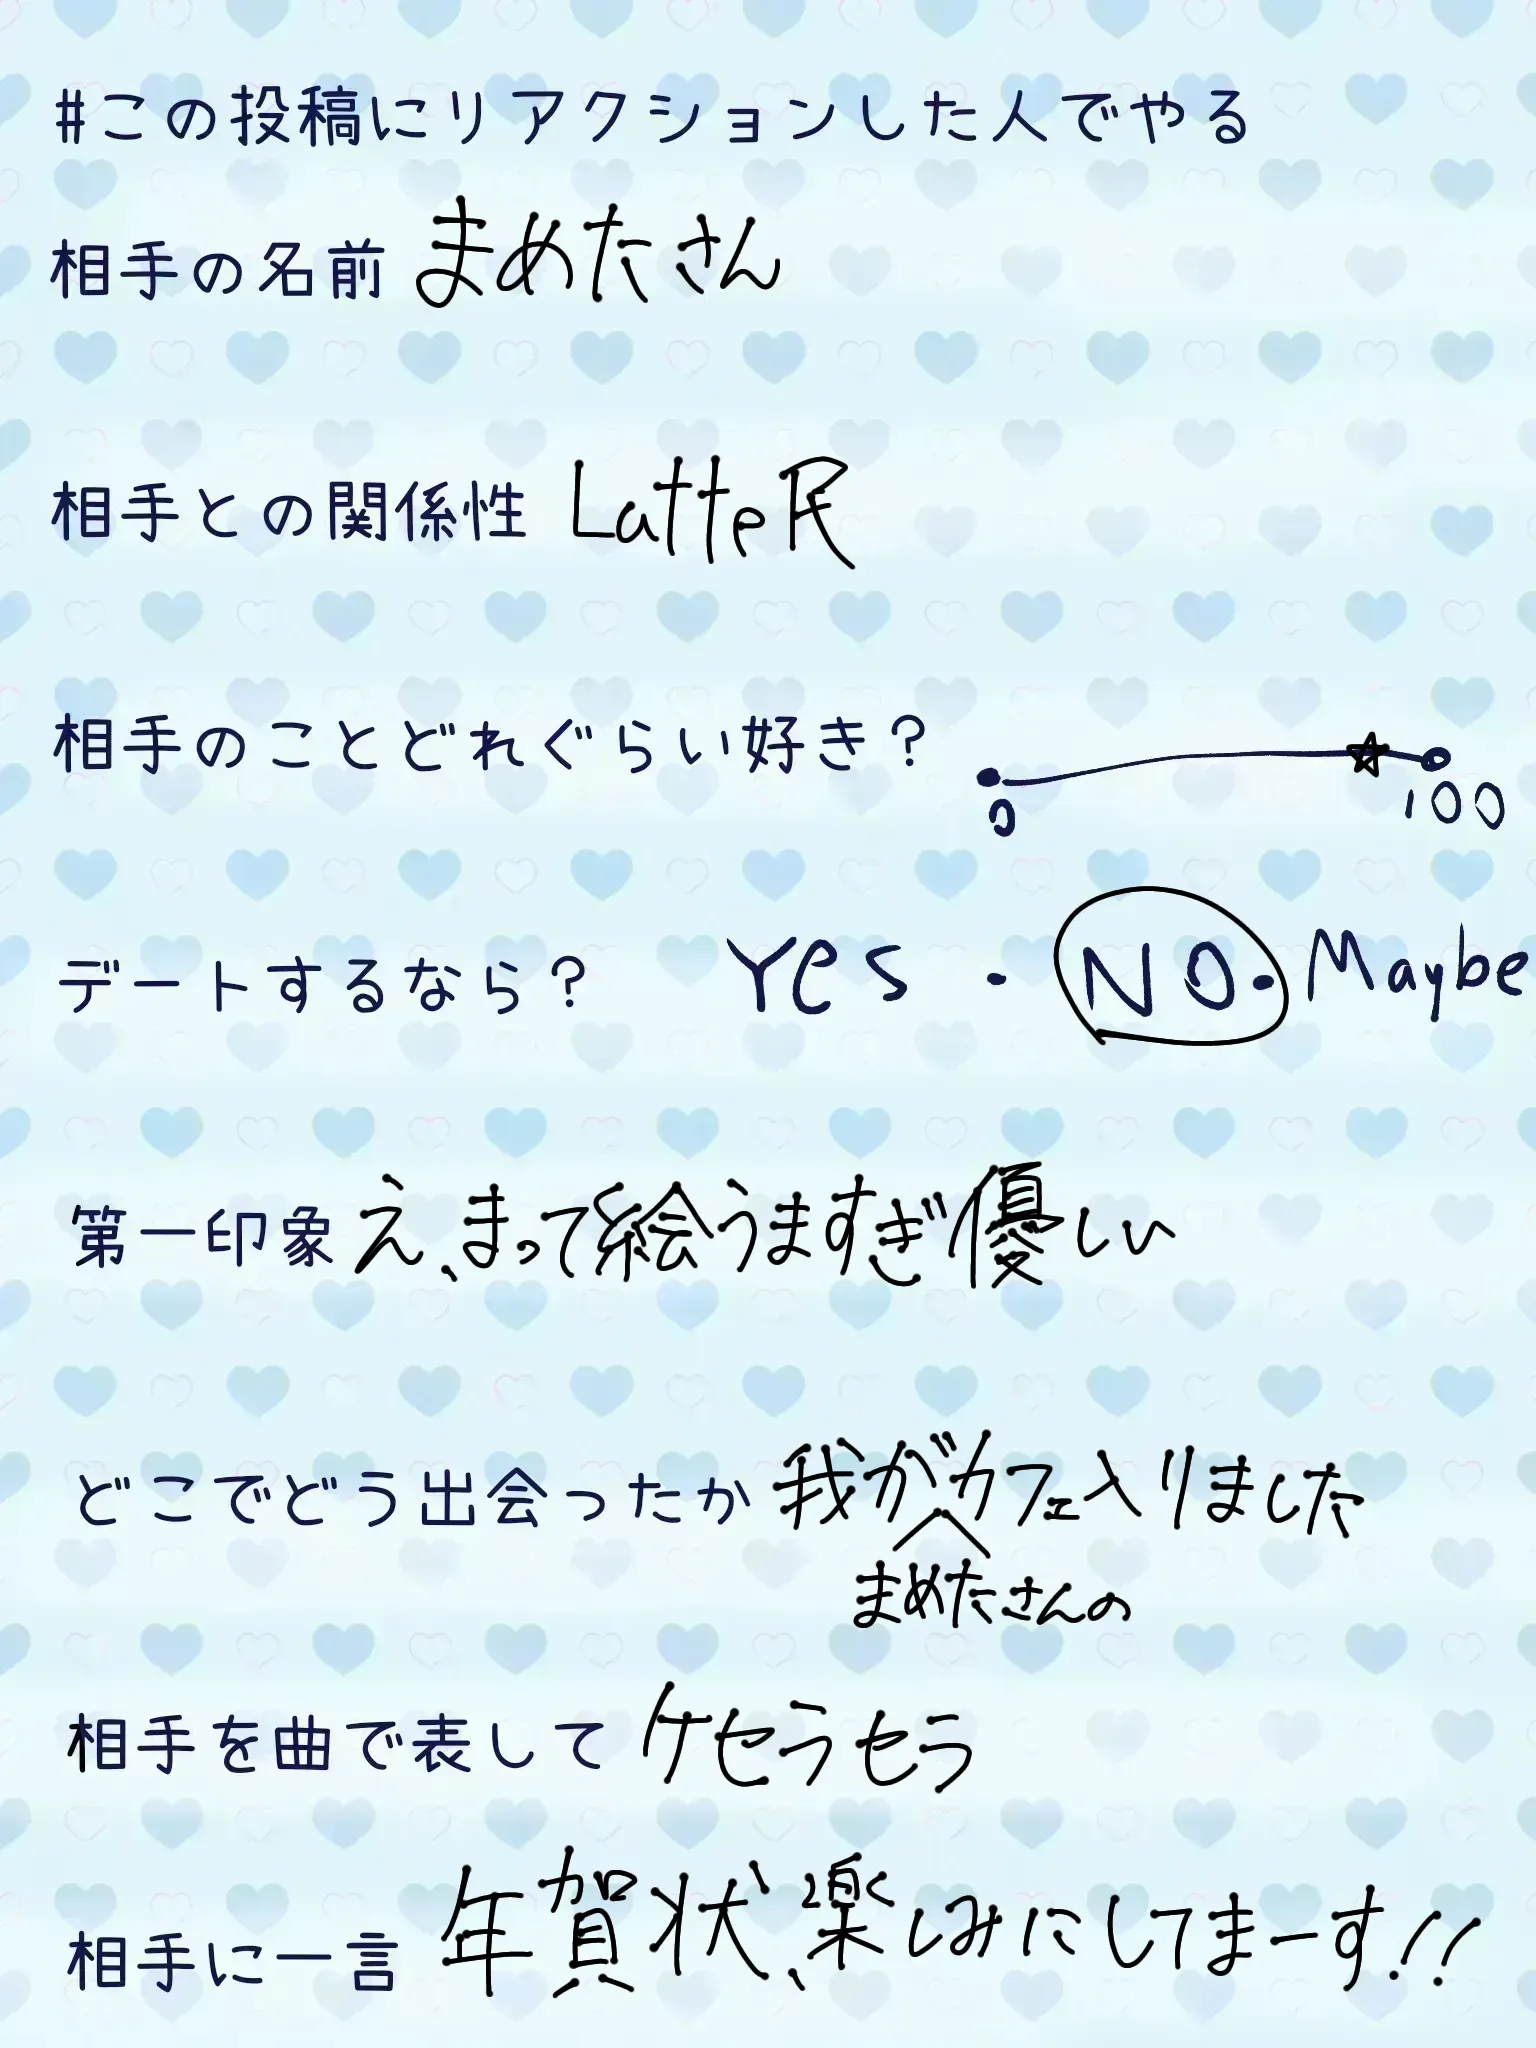 #この投稿にリアクションした人でやる
相手の名前 まめたさん
相手との関係性 Latte民
相手のことどれぐらい好き?
0 100
デートするなら? Yes・NO・Maybe
第一印象 え、まって絵うますぎ優しい
どこでどう出会ったか 我がカフェ入りました
まめたさんの
相手を曲で表して ケセラセラ
相手に一言 年賀状、楽しみにしてまーす!!